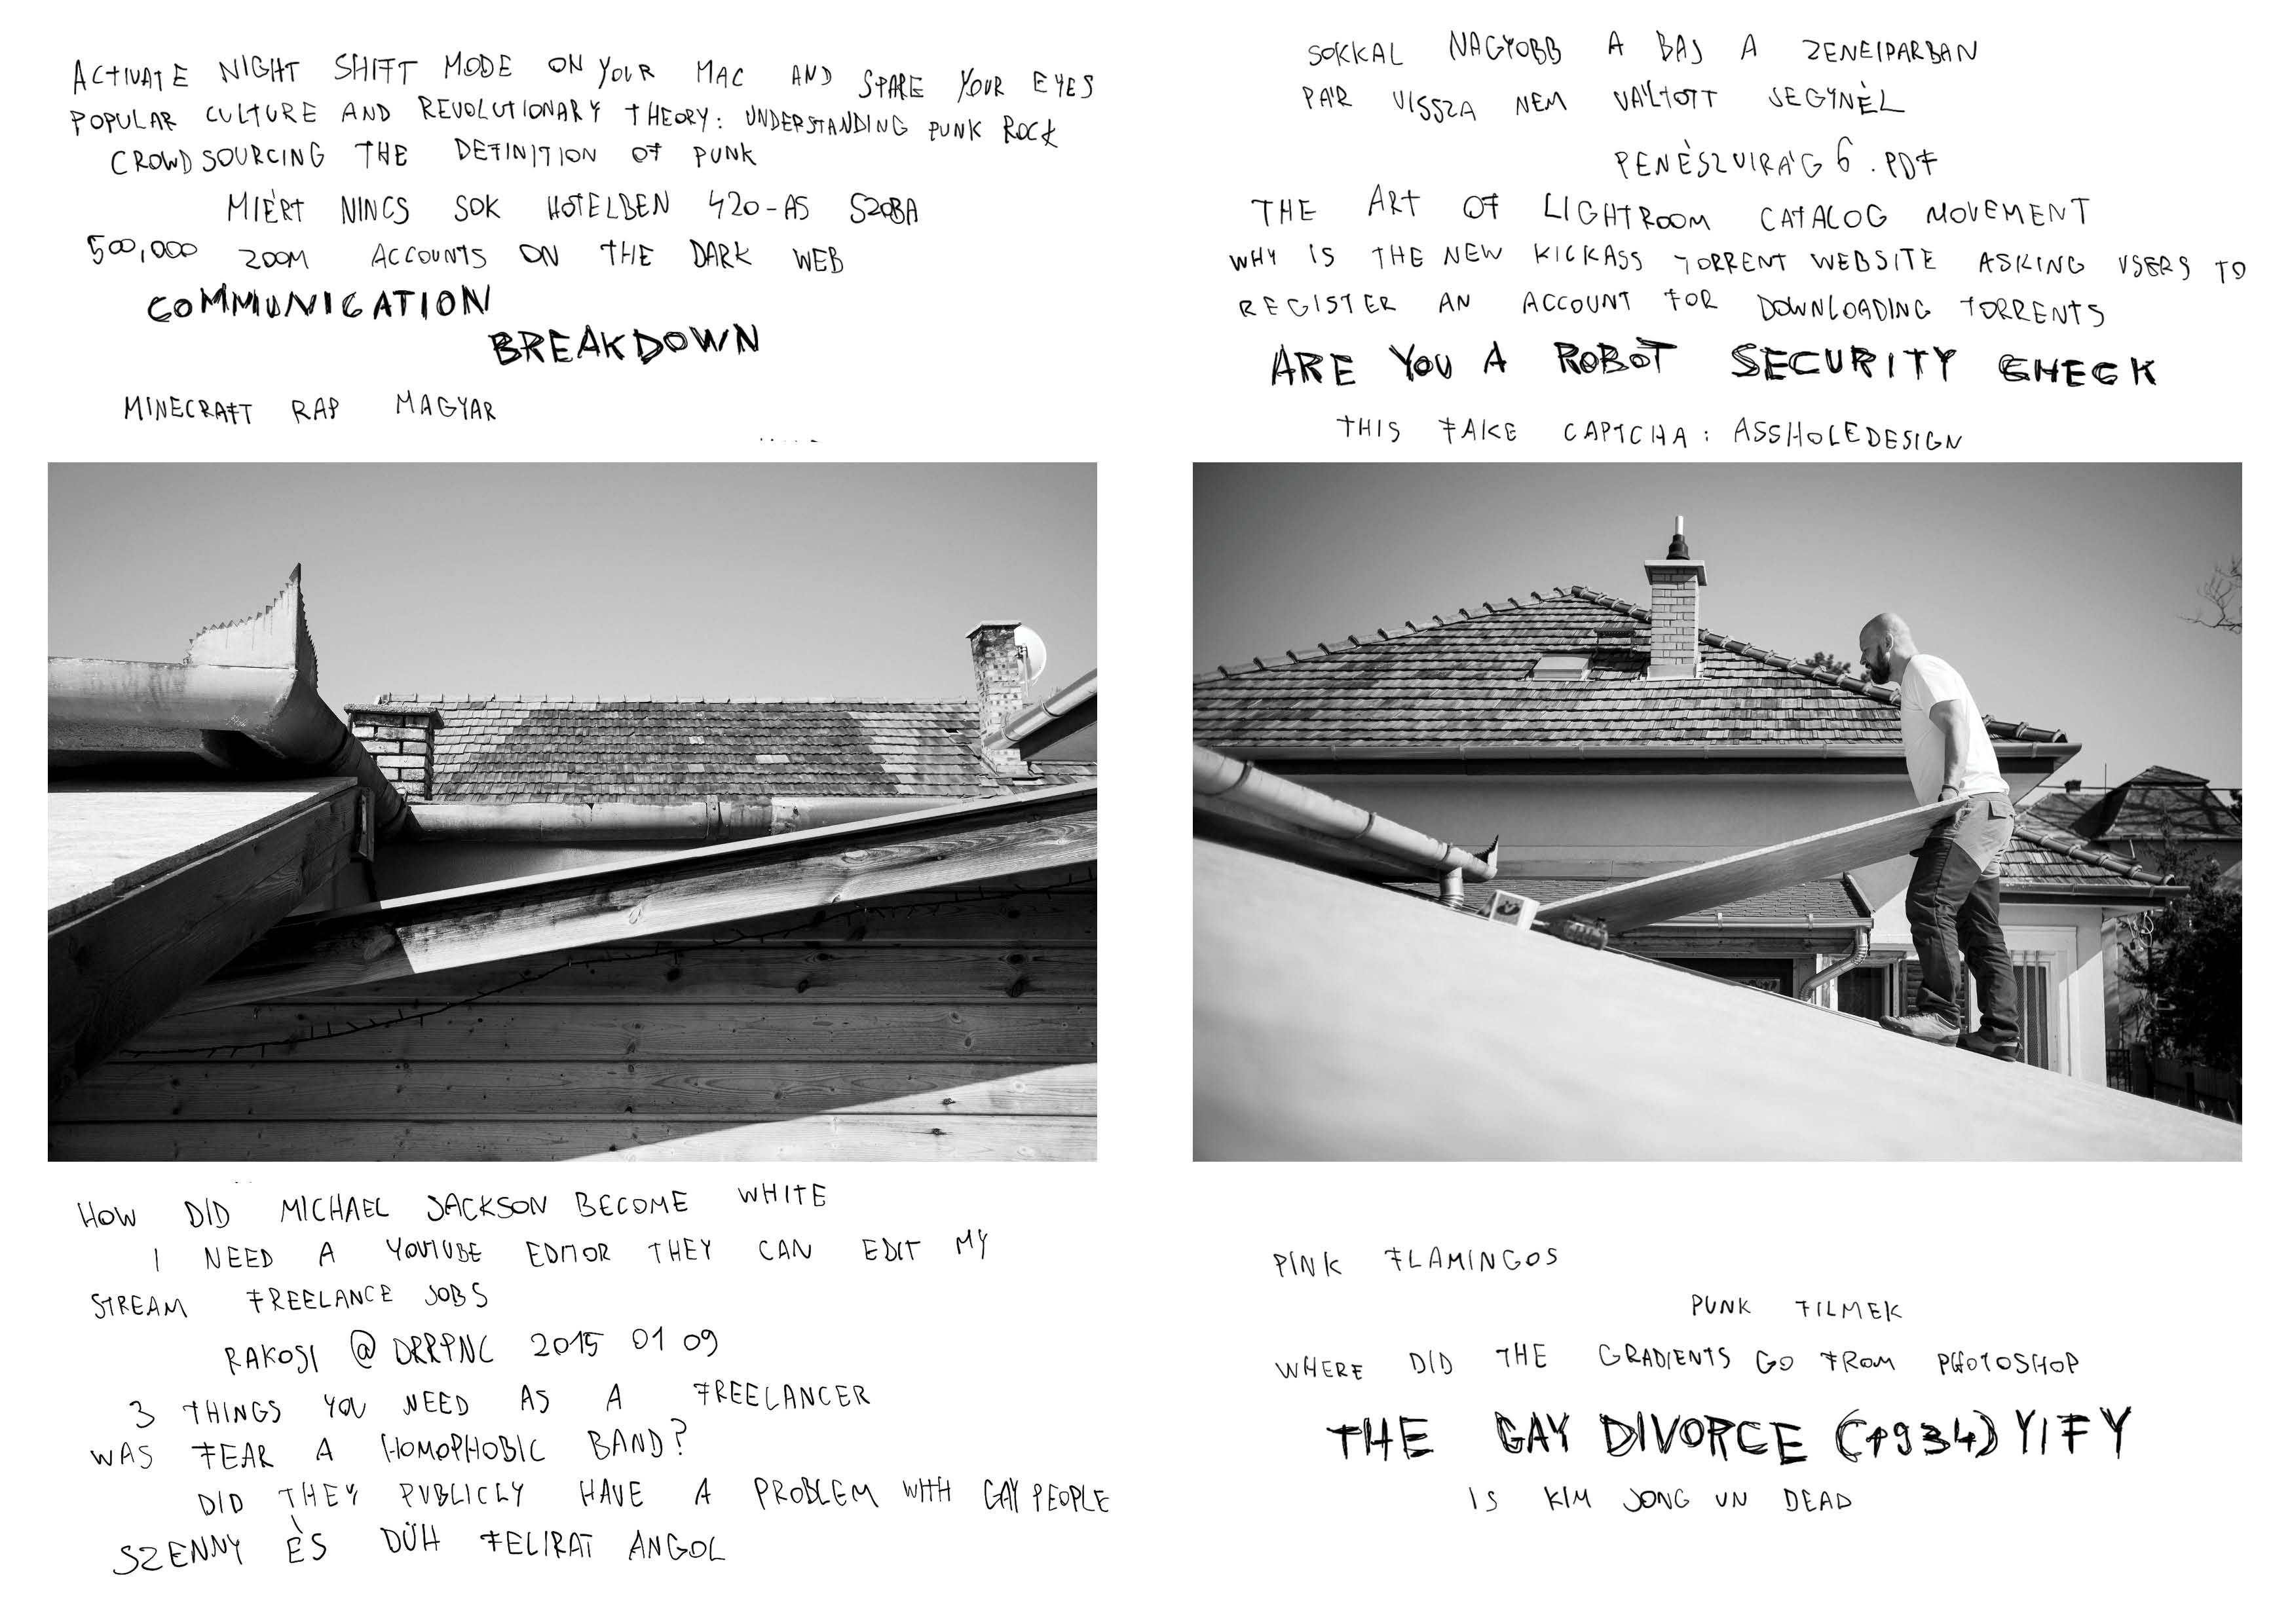 ACTIVATE NIGHT SHIFT MODE ON YOUR MAC AND SPARE YOUR EYES
POPULAR CULTURE AND REVOLUTIONARY THEORY: UNDERSTANDING PUNK ROCK
CROWDSOURCING THE DEFINITION OF PUNK
MIÉRT NINCS SOK HOTELBEN 420-AS SZOBA
500,000 ZOOM ACCOUNTS ON THE DARK WEB
COMMUNICATION
BREAKDOWN
MINECRAFT RAP MAGYAR
HOW DID MICHAEL JACKSON BECOME WHITE
I NEED A YOUTUBE EDITOR THEY CAN EDIT MY
STREAM FREELANCE JOBS
RAKOSI @ DRRPNC 2015 01 09
3 THINGS YOU NEED AS A FREELANCER
WAS FEAR A HOMOPHOBIC BAND?
DID THEY PUBLICLY HAVE A PROBLEM WITH GAY PEOPLE
SZENNY ÉS DÜH FELIRAT ANGOL
SOKKAL NAGYOBB A BAJ A ZENEIPARBAN
PÁR VISSZA NEM VÁLTOTT JEGYNÉL
PENÉSZVIRÁG 6.PDF
THE ART OF LIGHTROOM CATALOG MOVEMENT
WHY IS THE NEW KICKASS TORRENT WEBSITE ASKING USERS TO
REGISTER AN ACCOUNT FOR DOWNLOADING TORRENTS
ARE YOU A ROBOT SECURITY CHECK
THIS FAKE CAPTCHA: ASSHOLEDESIGN
PINK FLAMINGOS
PUNK FILMEK
WHERE DID THE GRADIENTS GO FROM PHOTOSHOP
THE GAY DIVORCE (1934) YIFY
IS KIM JONG UN DEAD